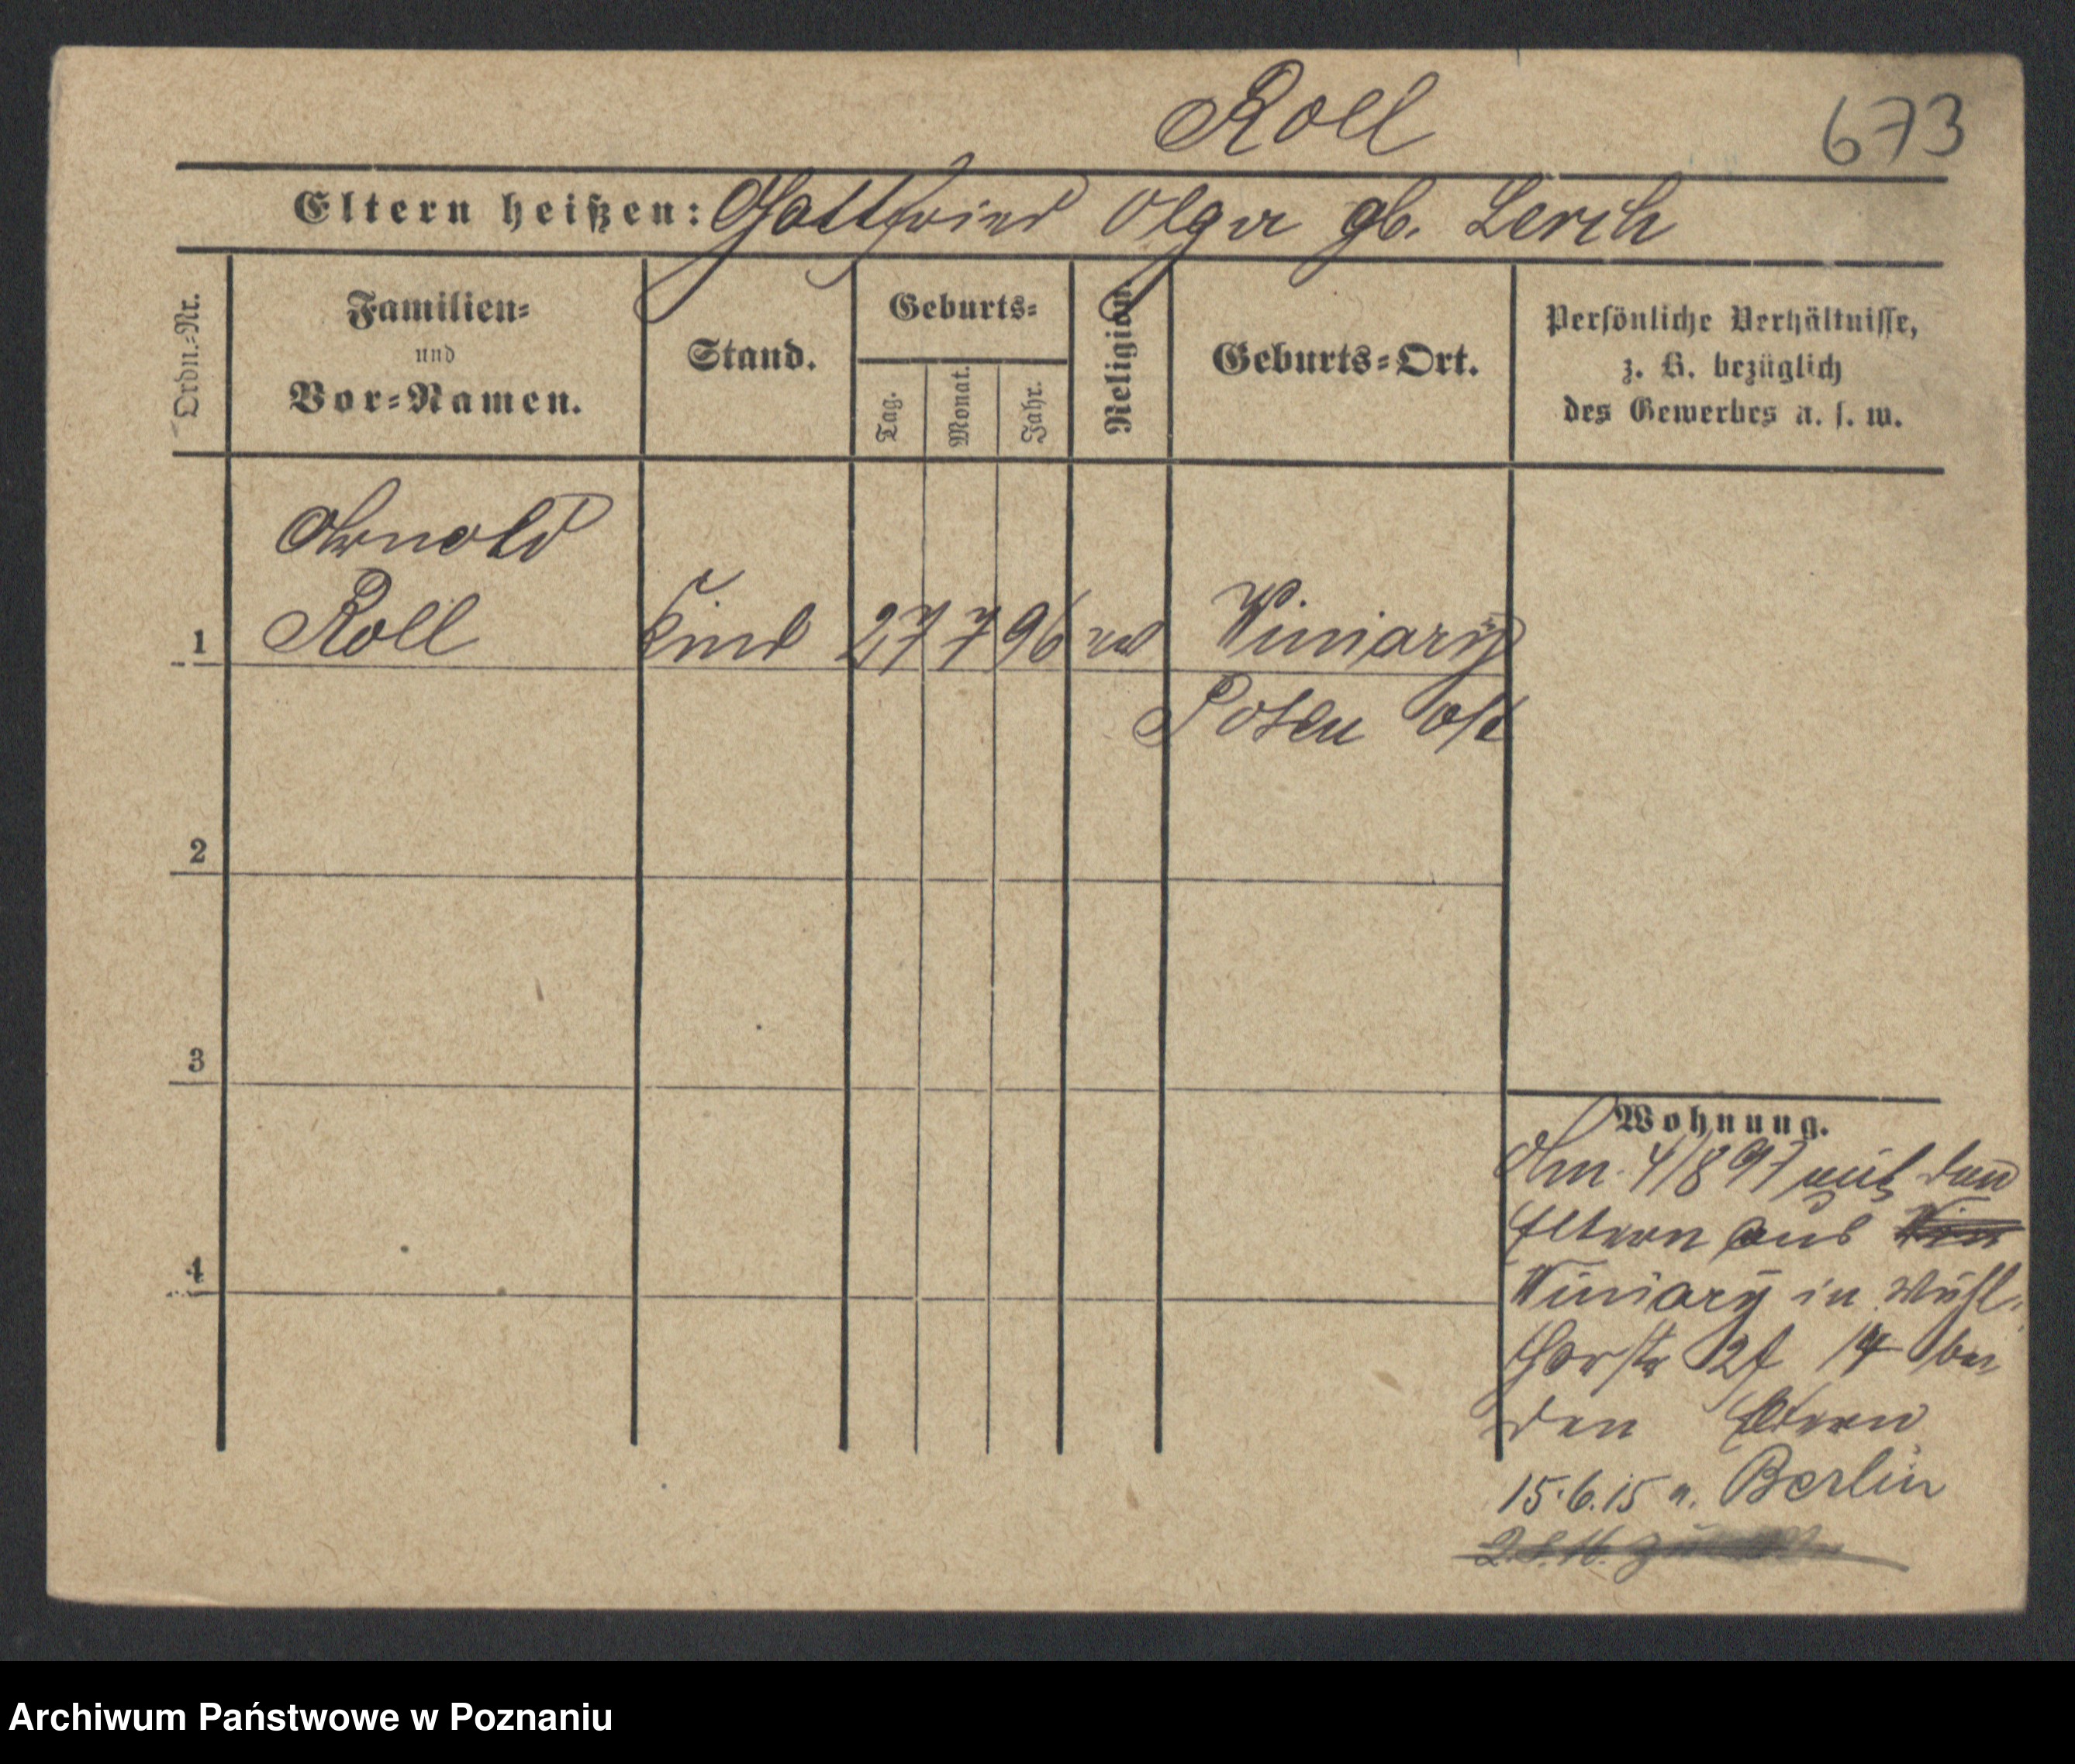 Roll
673
Eltern heißen: Gottfried Olga gb. Lerch
Ordn.-Nr.
Familien-
und
Vor-Namen.
Stand.
Geburts-
Tag.
Monat.
Jahr.
Religion.
Geburts-Ort.
Persönliche Verhältnisse,
z. B. bezüglich
des Gewerbes u. s. w.
Arnold
1 Roll Kind 27 7 96 Winiary
Posen Ost
2
3
4
Wohnung.
Am 4/8 97 mit den
Eltern aus
Winiary in Mühl-
thorstr 14 bei
den Eltern
15.6.15 n. Berlin
Archiwum Państwowe w Poznaniu